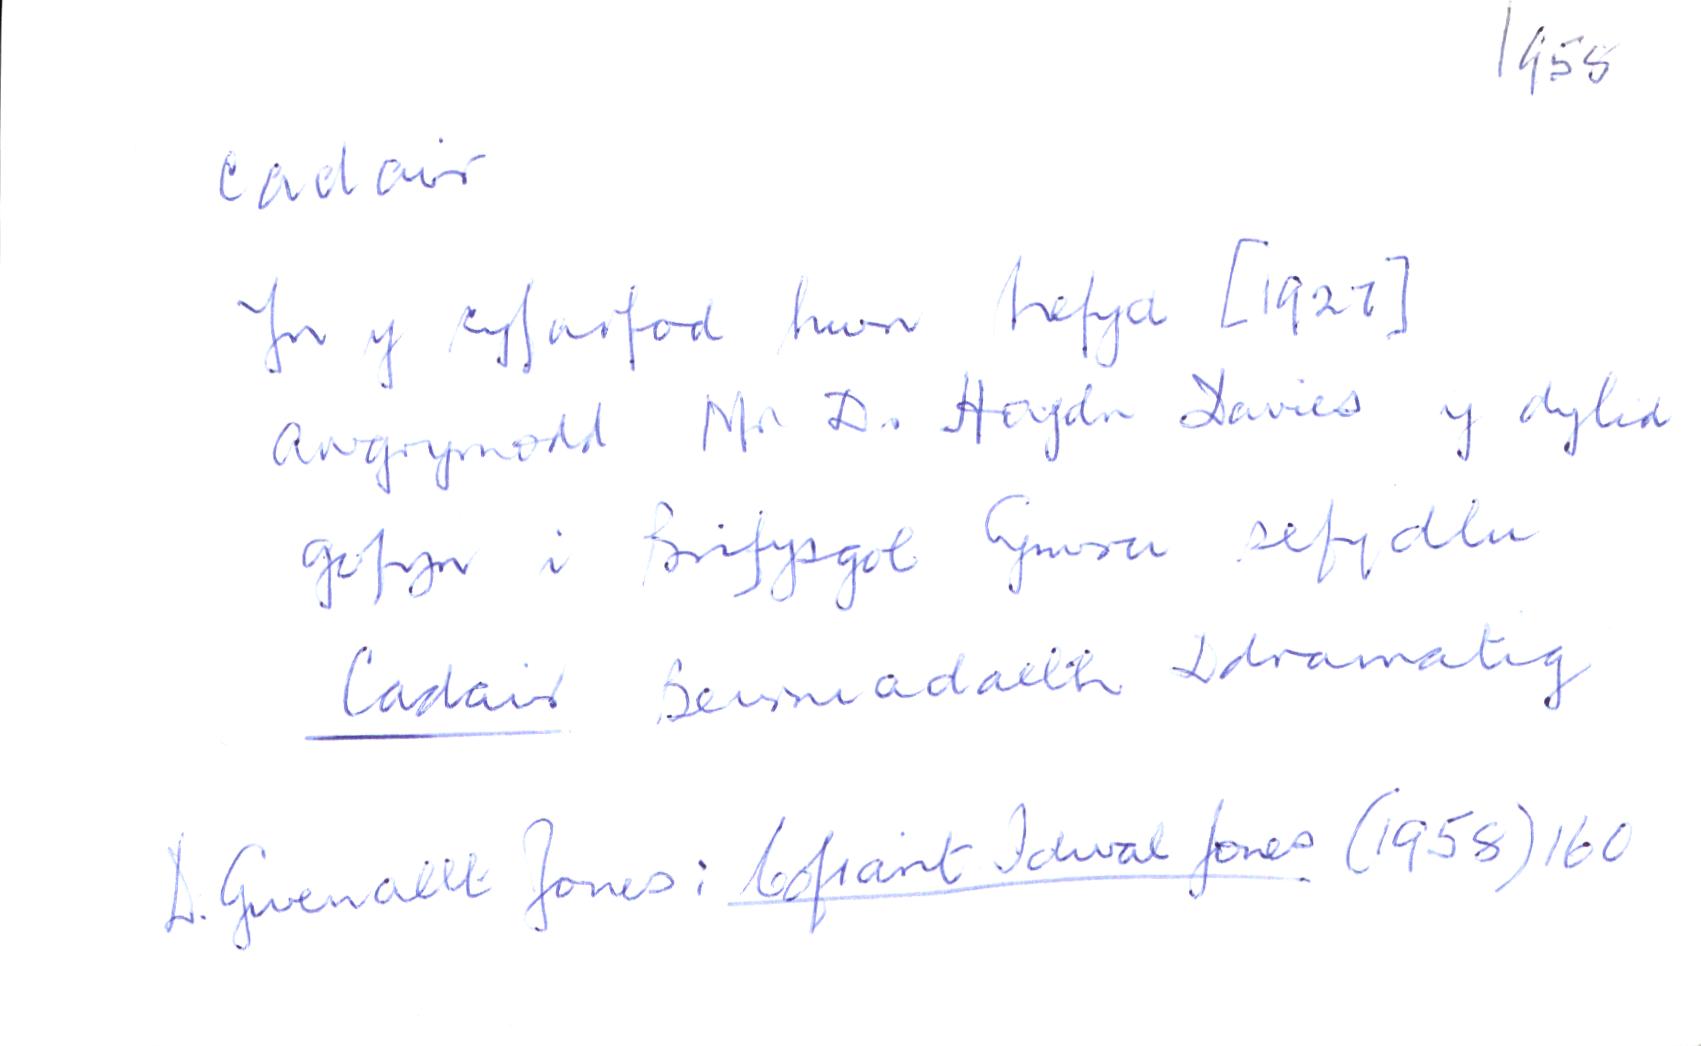 1958
cadair
Yn y cyfarfod hwn hefyd [1927]
awgrymodd Mr D. Haydn Davies y dylid
gofyn i Brifysgol Cymru sefydlu
Cadair Beirniadaeth Ddramatig
D. Gwenallt Jones: Cofiant Idwal Jones (1958) 160